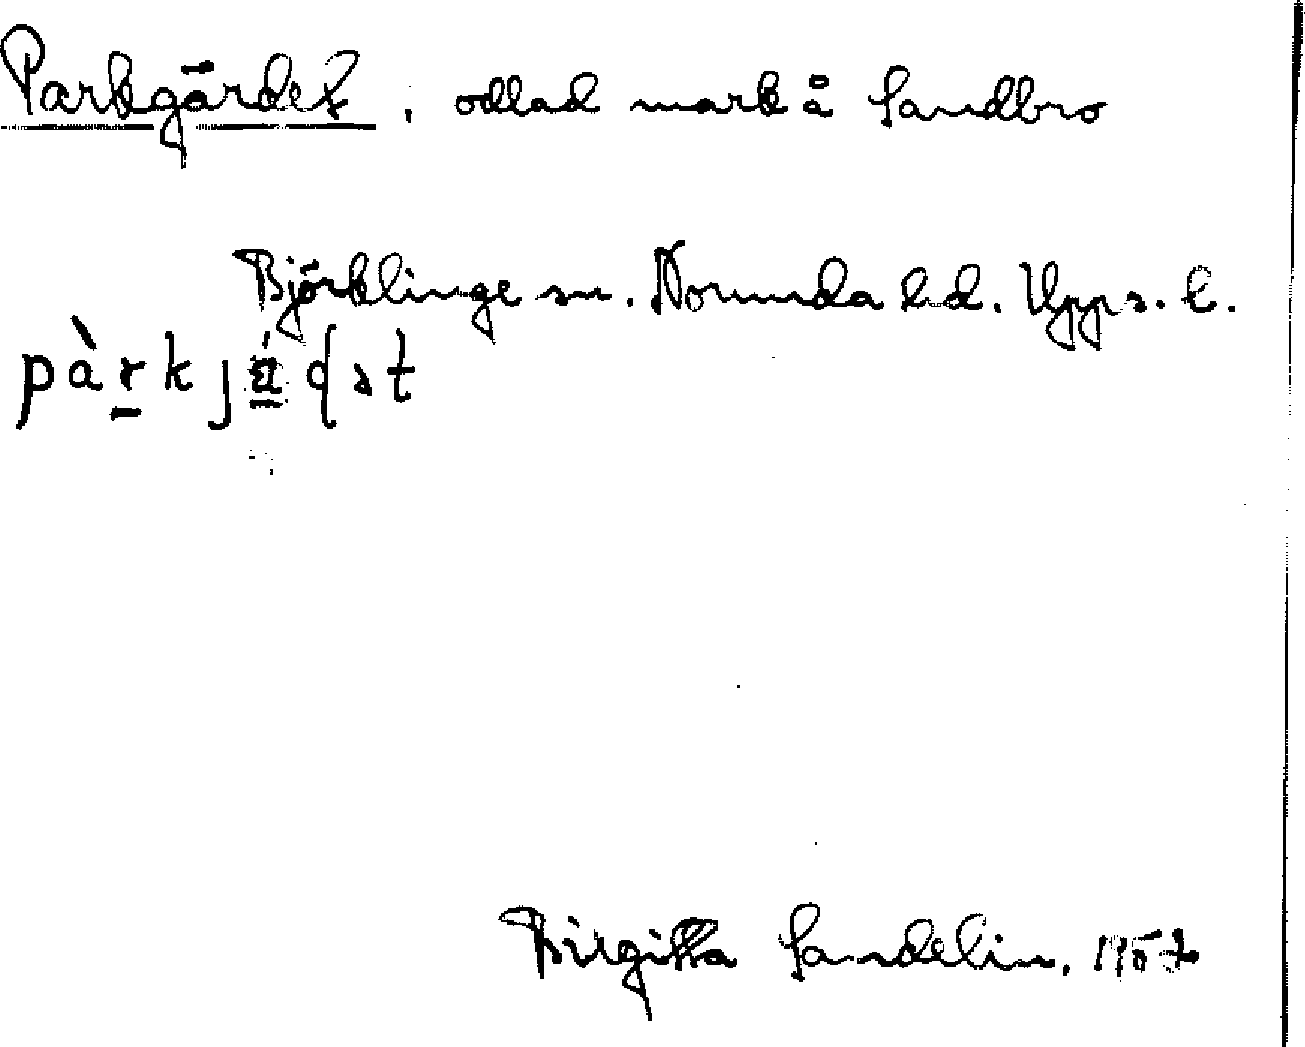 Parkgärdet, odlad mark å Sandbro
Björklinge sn. Norunda hd. Upps. l.
pàrkjä́ɖət
Birgitta Sandelin, 1957